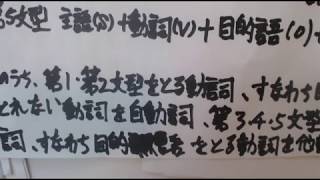 第5文型 主語(S)+動詞(V)+目的語(O)+
のうち、第1・第2文型をとる動詞、すなわち
とれない動詞を自動詞、第3・4・5文型
詞、すなわち目的語をとる動詞を他動